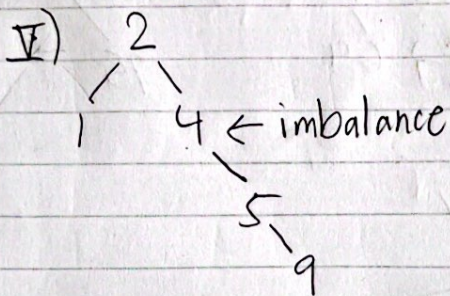 V) 2
1 4 ← imbalance
5
9